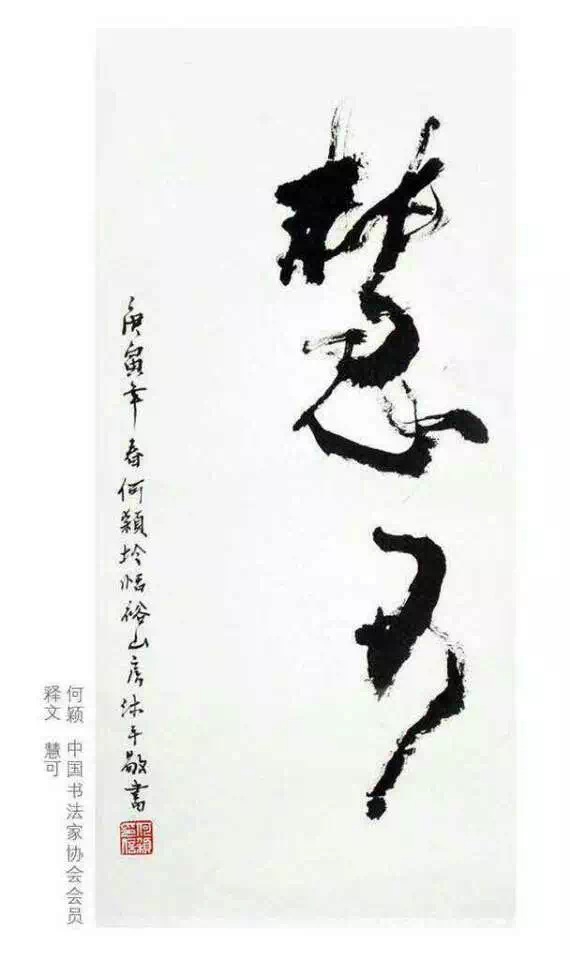 慧可
庚寅年春何颖於恬裕山房沐手敬書
何颖印信
何颖 中国书法家协会会员
释文 慧可